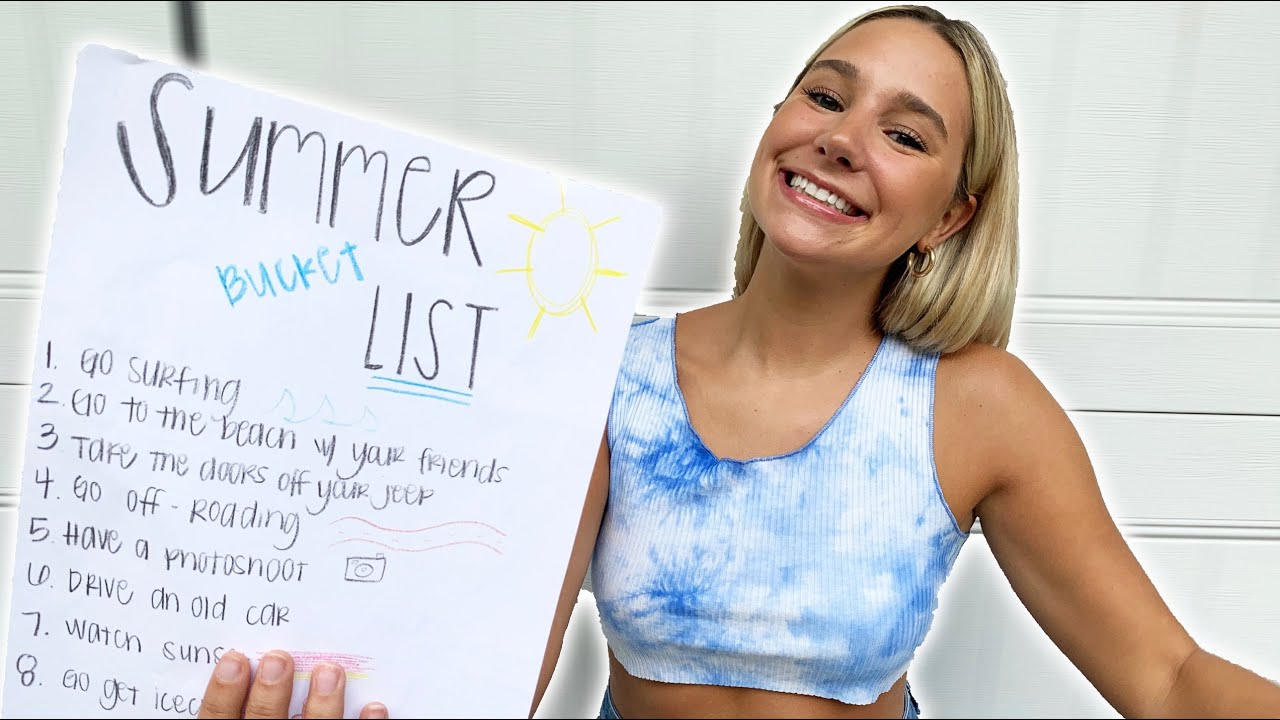 SUMMER
BUCKET
LIST
1. GO SURFING
2. GO TO THE BEACH W/ YOUR FRIENDS
3 TAKE THE DOORS OFF YOUR JEEP
4. GO OFF-ROADING
5. HAVE A PHOTOSHOOT
6. DRIVE AN OLD CAR
7. WATCH
8. GO GET